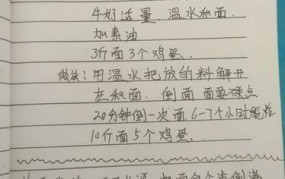 牛奶适量. 温水和面.
加素油
3斤面3个鸡蛋.
做法: 用温水把放的料解开
在和面. 倒面 面要揉点
20分钟倒一次面 6-7个小时能炸
10斤面5个鸡蛋.